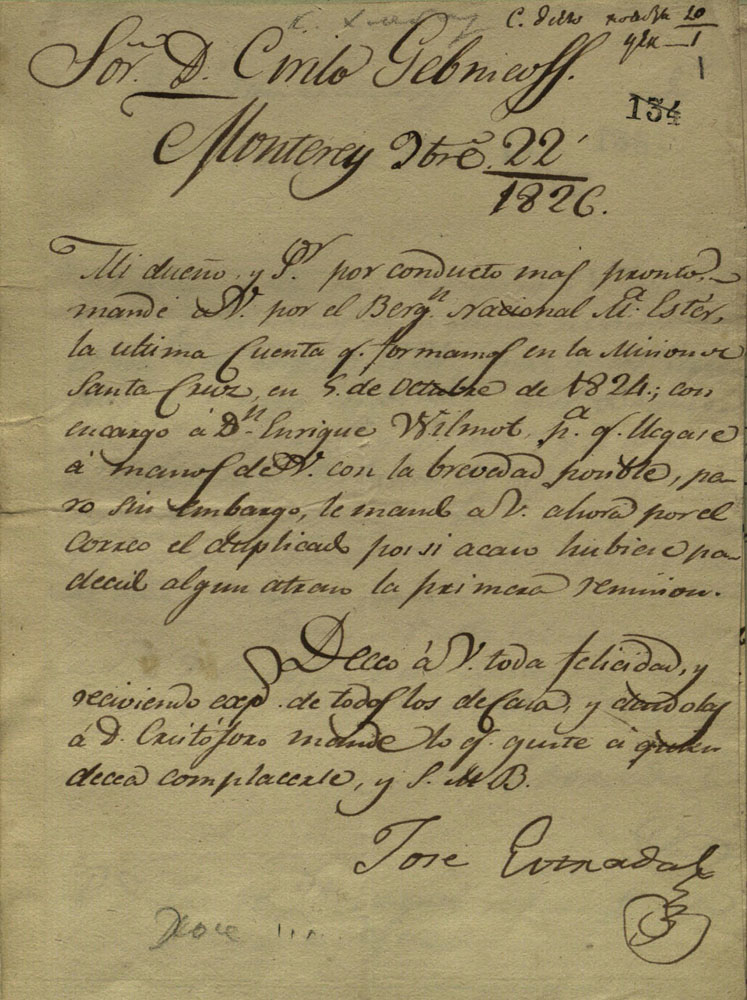 134
Sor. D. Cirilo Gebnicoff.
Monterey 9bre. 22
1826.
Mi dueño y Sor. por conducto mas pronto
mandé á V. por el Bergn. Nacional Ma. Estér,
la ultima Cuenta q. formamos en la Mision de
Santa Cruz, en 5. de Octubre de 1824.; con
encargo á Dn. Enrique Wilmot, pa. q. llegase
á manos de V. con la brevedad posible, pa-
ro sin embargo, le mando a V. ahora por el
Correo el duplicado por si acaso hubiese pa-
decido algun atraso la primera remision.
Deceo á V. toda felicidad, y
reciviendo exps. de todos los de Casa, y dandolas
á D. Cristóforo mande lo q. guste á quien
decea complacerle, y S. M. B.
José Estrada